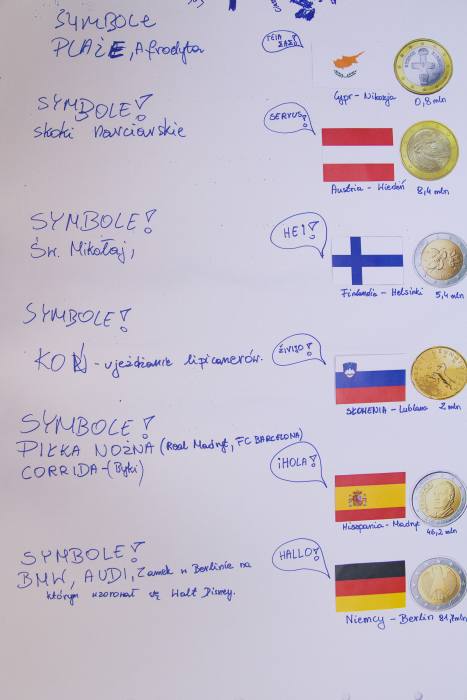 SYMBOLE
PLAŻE, Afrodyta
TEIA
ZAZU!
Cypr - Nikozja 0,8 mln
SYMBOLE!
skoki narciarskie
SERVUS!
Austria - Wiedeń 8,4 mln
SYMBOLE!
Św. Mikołaj,
HEI!
Finlandia - Helsinki 5,4 mln
SYMBOLE!
KOŃ - ujeżdżanie lipicanerów.
ŽIVIJO!
SŁOWENIA - Lublana 2 mln
SYMBOLE!
PIŁKA NOŻNA (Real Madryt, FC BARCELONA)
CORRIDA - (Byki)
¡HOLA!
Hiszpania - Madryt 46,2 mln
SYMBOLE!
BMW, AUDI, Zamek w Berlinie na
którym wzorował się Walt Disney.
HALLO!
Niemcy - Berlin 81,8 mln